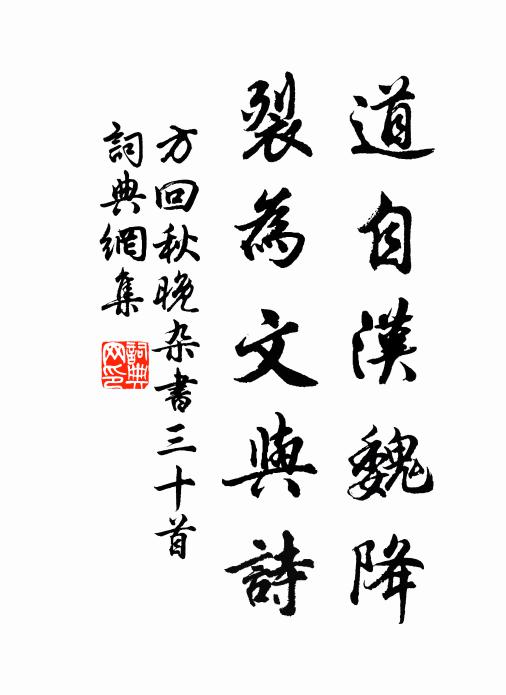 道自漢魏降
裂為文與詩
方回秋晚杂書三十首
詞典網集
詞典
网印